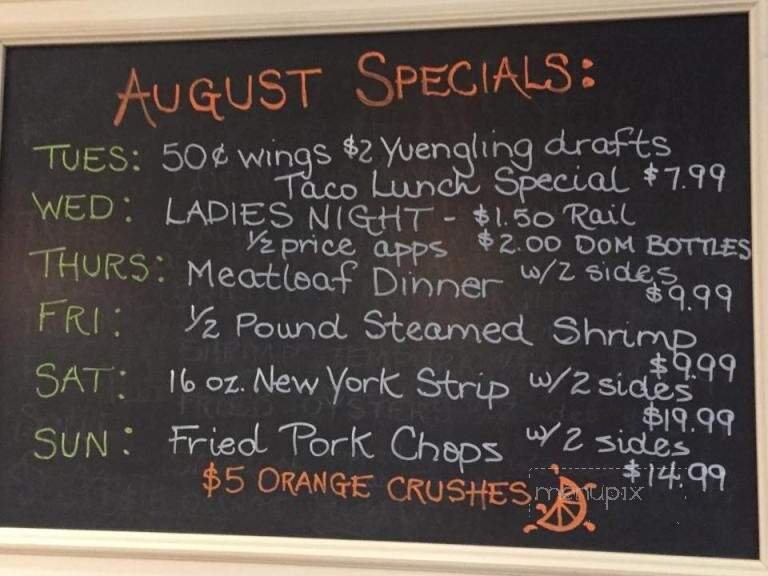 AUGUST SPECIALS:
TUES: 50¢ wings $2 Yuengling drafts
Taco Lunch Special $7.99
WED: LADIES NIGHT - $1.50 Rail
1/2 price apps $2.00 DOM BOTTLES
THURS: Meatloaf Dinner w/2 sides
$9.99
FRI: 1/2 Pound Steamed Shrimp
$9.99
SAT: 16 oz. New York Strip w/2 sides
$19.99
SUN: Fried Pork Chops w/2 sides
$14.99
$5 ORANGE CRUSHES
menupix